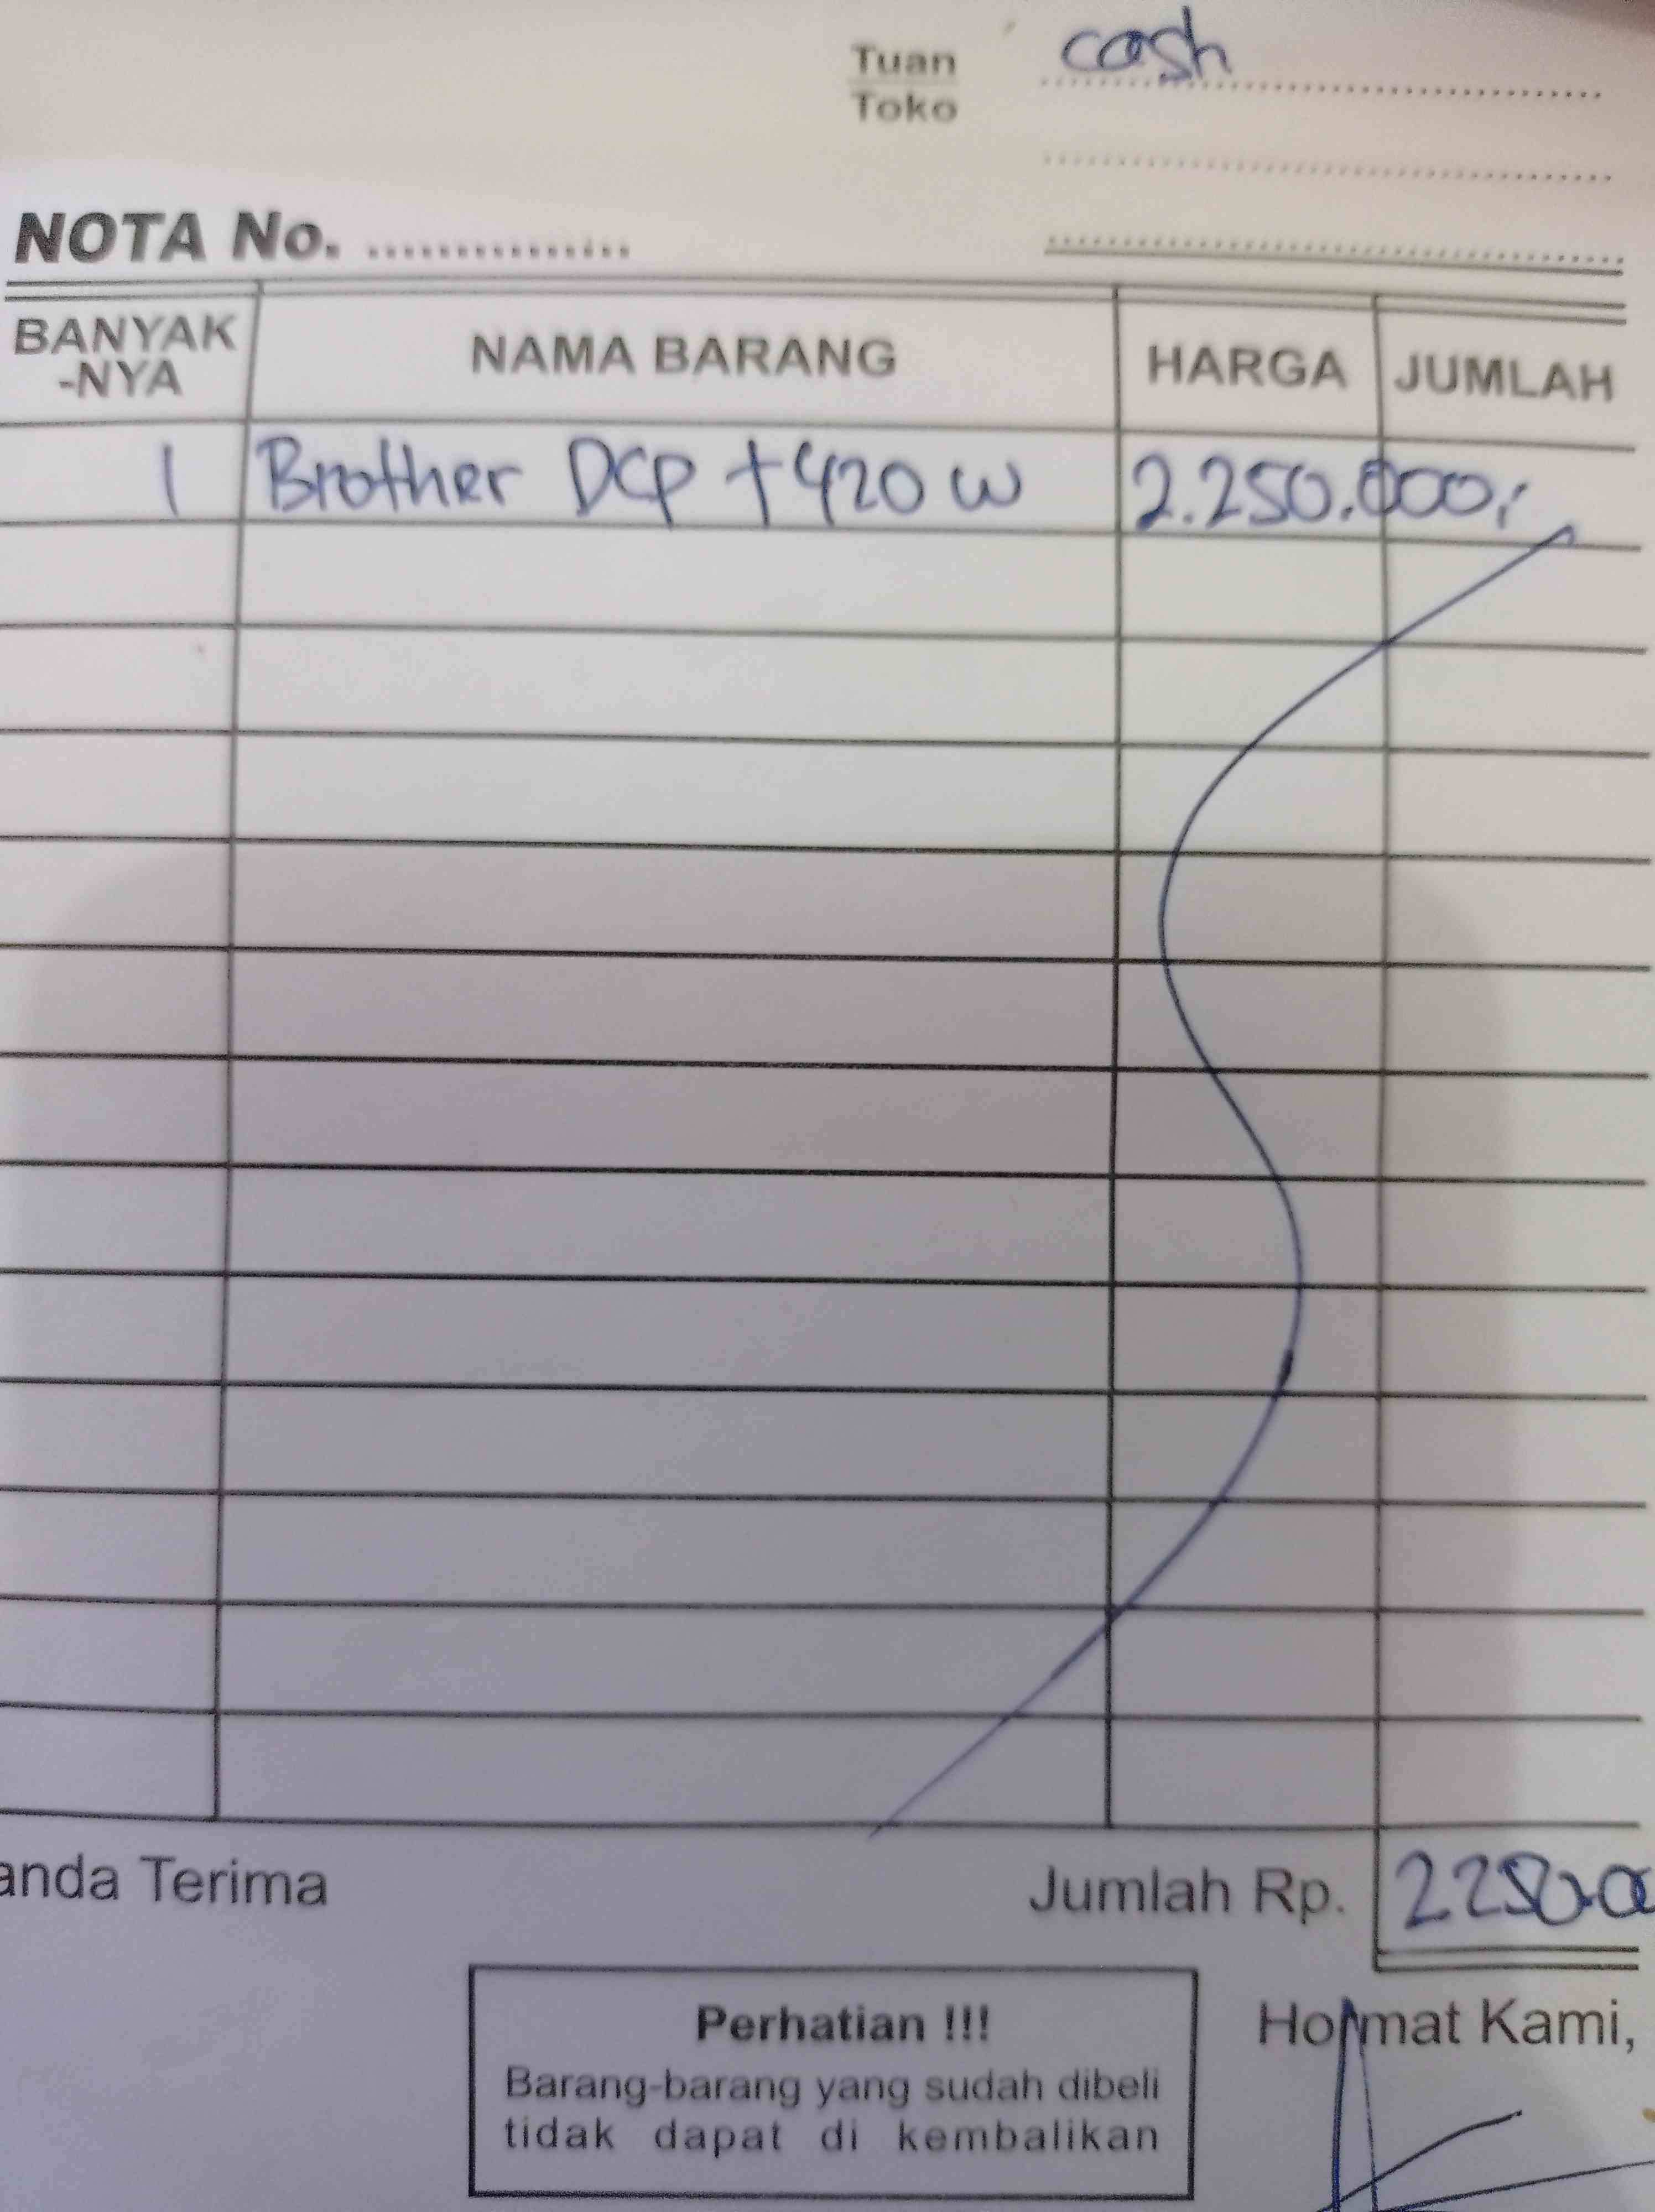 Tuan cash
Toko
NOTA No. ................
BANYAK -NYA NAMA BARANG HARGA JUMLAH
1 Brother DCP t420 w 2.250.000,-
anda Terima Jumlah Rp. 2250.00
Perhatian !!!
Hormat Kami,
Barang-barang yang sudah dibeli
tidak dapat di kembalikan